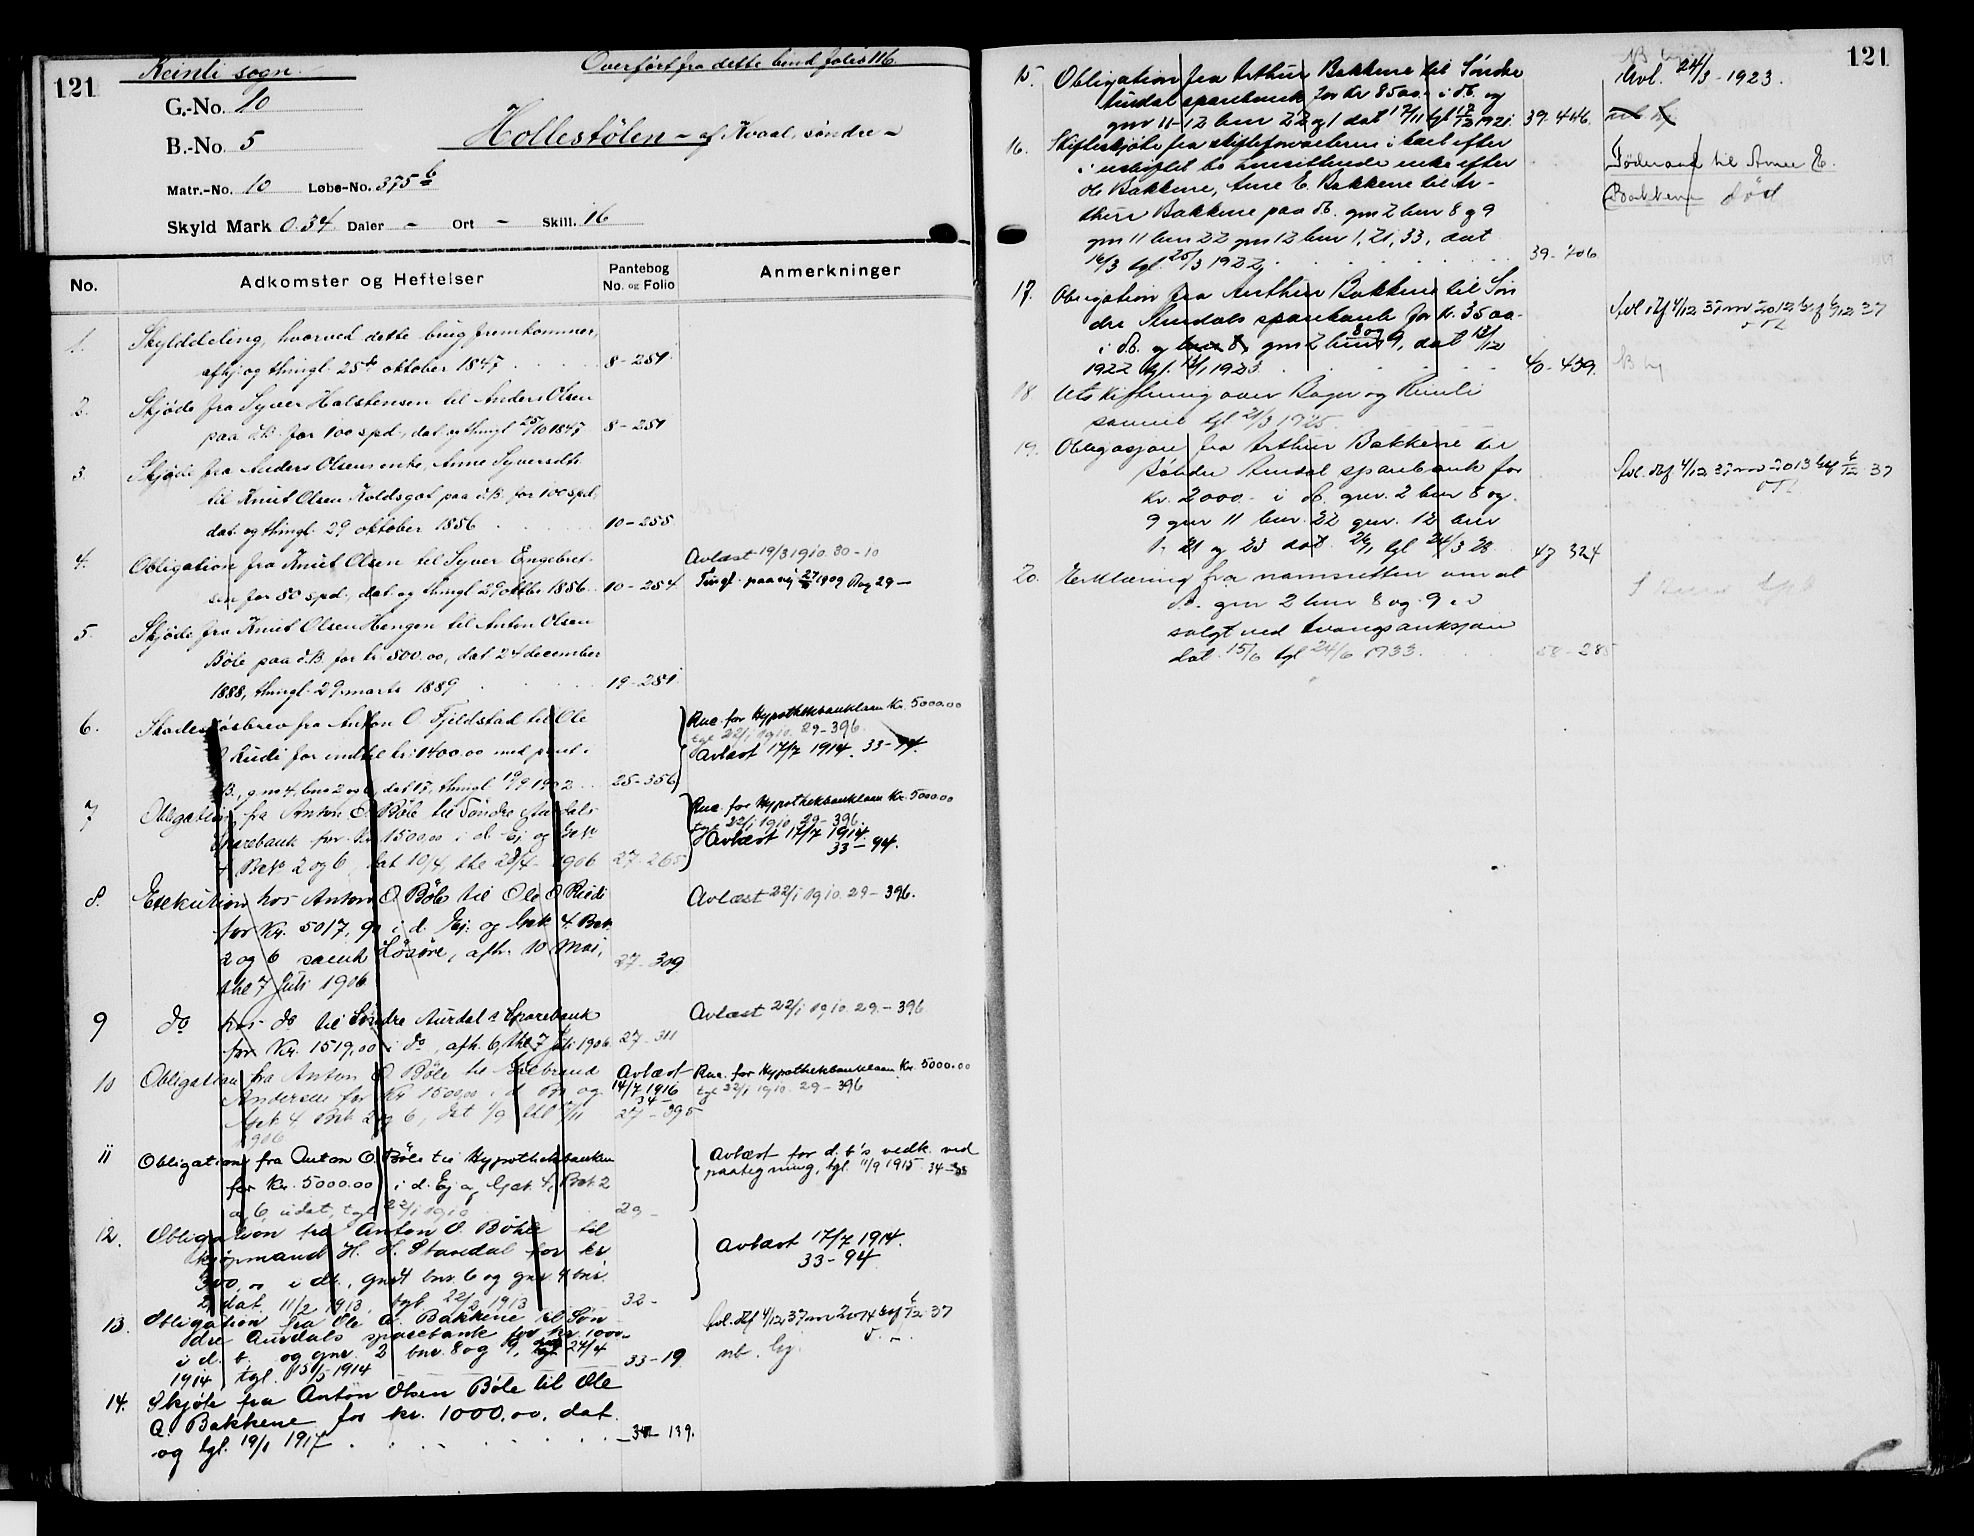 121
Reinli sogn.
Overført fra dette bind folio 116.
G.-No. 10
B.-No. 5
Hollestølen - af Kvaal, søndre -
Matr.-No. 10 Løbe-No. 375 b
Skyld Mark 0.34 Daler - Ort - Skill. 16
No.
Adkomster og Heftelser
Pantebog
No. og Folio
Anmerkninger
1. Skylddeling, hvorved dette brug fremkommer,
afhj. og thingl. 25de oktober 1847 8-251
2. Skjøde fra Syver Halstensen til Anders Olsen
paa d.B. for 100 spd., dat. og thingl 25/10 1847 8-251
3. Skjøde fra Anders Olsens enke, Anne Syversdtr.
til Knut Olsen Koldsgot paa d.B. for 100 spd.,
dat. og thingl. 29 oktober 1856 10-255
4. Obligation fra Knut Olsen til Syver Engebret- Avlæst 19/3 1910. 30-10
sen for 80 spd., dat. og thingl 29 oktbr 1856 10-254 Tingl. paa ny 27/ 1909 Bog 29-
5. Skjøde fra Knut Olsen Hengen til Anton Olsen
Bøle paa d.B. for kr. 500.00, dat 24 december
1888, thingl. 29 marts 1889 19-251
6. Skadesløsbrev fra Anton O. Fjeldstad til Ole Rue. for Hypothekbanklaan Kr. 5000.00
tgl 22/1 1910. 29-396.
O. Rudi for indtil kr. 1400.00 med pant i Avlæst 17/7 1914. 33-94.
B., g.no 4, bno 2 og 6, dat 17, thingl 19/9 1902 25-356
7 Obligation fra Anton O. Bøle til Søndre Aurdals Rue. for Hypothekbanklaan Kr. 5000.00
tgl 22/1 1910. 29-396.
Sparebank for Kr. 1500,00 i d. Ej. og G.no Avlæst 17/7 1914.
4 B.no 2 og 6, dat 10/4, thl 23/4 1906 27-265 33-94.
8. Exekution hos Anton O Bøle til Ole O Ruidi Avlæst 22/1 1910. 29-396.
for Kr. 5017, 90 i d. Ej. og G.no 4. B.no
2 og 6 samt Løsøre, afh. 10 Mai, 27-309
thl 7 Juli 1906
9 do hos do til Søndre Aurdals Sparebank Avlæst 22/1 1910. 29-396
for Kr. 1519,00 i do, afh. 6, thl 7 Juli 1906. 27-311
10 Obligation fra Anton O Bøle til Gulbrand Avlæst Rue. for Hypothekbanklaan Kr. 5000.00
14/7 1916 tgl 22/1 1910. 29-396
Andersen for Kr 1500,00 i d Br. og 34-
G.no 4 B.no 2 og 6, dat 1/9 thl /11 27-395
1906
11 Obligation fra Anton O. Bøle til Hypothekbanken Avlæst for d. b's vedk. ved
for Kr. 5000.00 i d. Ej. og G.no 4, B.no 2 paategning, tgl. 11/9 1915. 34-
og 6 udat, tgl 22/1 1910 29-
12. Obligation fra Anton O. Bøhle til
kjøpmand H. H. Standal for kr Avlæst 17/7 1914.
300,00 i db., gnr 4 bnr. 6 og gnr. 4 bnr. 33-94.
2, dat. 11/2 1913, tgl. 22/2 1913 32-
13. Obligation fra Ole A. Bakkene til Søn- Avl. iflg 4/12 37 nr 2014 tgl 6/12 37
dre Aurdals sparebank for kr. 1000-
i d. b. og gnr. 2 bnr. 8 og 9, dat 24/4 33-19 nb. hj.
1914 tgl. 15/5 1914
14. Skjøte fra Anton Olsen Bøle til Ole
A. Bakkene for kr. 1000.00, dat.
og tgl. 19/1 1917 139.
121
15. Obligation fra Arthur Bakkene til Søndre Avl. 24/3-1923.
Aurdal sparebank for Kr 8500.- i db. og
gnr 11-12 bnr 22 og 1 dat 17/11 tgl 17/12 1921. 39. 446.
16. Skifteskjøte fra skifteforvalteren i boet efter Føderaad til Anne E.
i uskiftet bo hensittende enke efter
Ole Bakkene, Anne E. Bakkene til Ar- Bakkene død
thur Bakkene paa db. gnr 2 bnr 8 og 9
gnr 11 bnr 22 gnr 12 bnr 1, 21, 33, dat
16/3 tgl. 25/3 1922. 39-706
17. Obligation fra Arthur Bakkene til Søn- Avl iflg 4/12 37 nr 2012 tgl 6/12 37
dre Aurdals sparebank for kr. 3500-
i db. og gnr 2 bnr 8 og 9, dat 13/12
1922 tgl. 13/1 1923. 40-439. NB hj
18 Utskiftning over Bagn og Reinli
sameie tgl 21/3 1925.
19. Obligasjon fra Arthur Bakkene til
Søndre Aurdal sparebank for Avl. iflg 4/12 37 nr 2013 tgl 6/12 37
kr. 2000.- i db. gnr. 2 bnr 8 og
9 gnr 11 bnr. 22 gnr. 12 bnr
1. 21 og 23 dat. 26/1 tgl 24/3 28 47 324
20. Erklæring fra namsretten om at
db. gnr 2 bnr 8 og 9 er
solgt ved tvangsauksjon
dat. 15/6 tgl 24/6 1933. 50-285